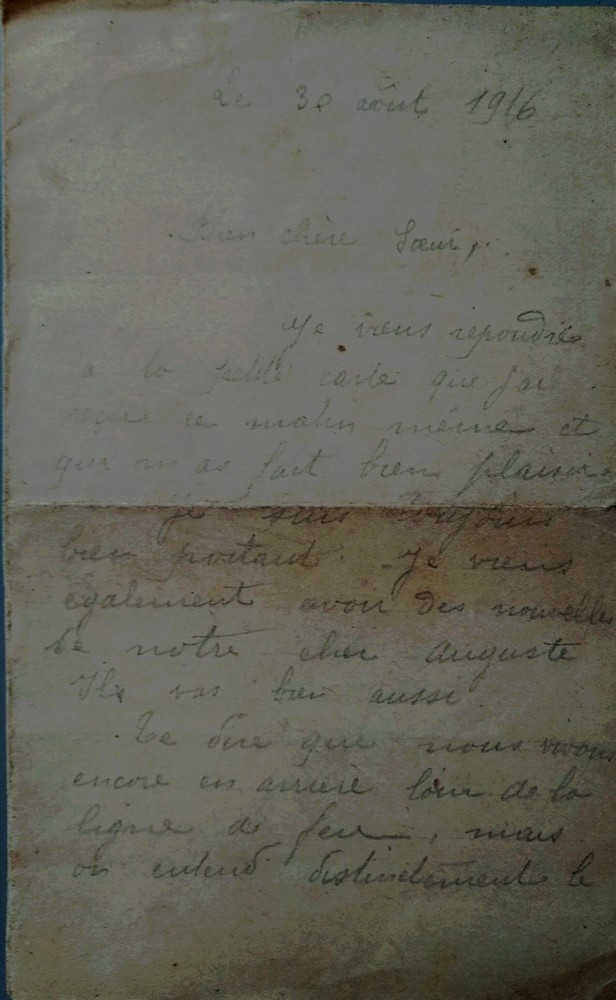 Le 30 août 1916
Bien chère Sœur,
Je viens repondre
a la petite carte que j'ai
reçu ce matin même et
qui m'as fait bien plaisir
je suis toujours
bien portant. Je viens
également avoir des nouvelles
de notre cher Auguste
Ils vas bien aussi
Te dire que nous vivons
encore en arrière loin de la
ligne de feu, mais
on entend distinctement le